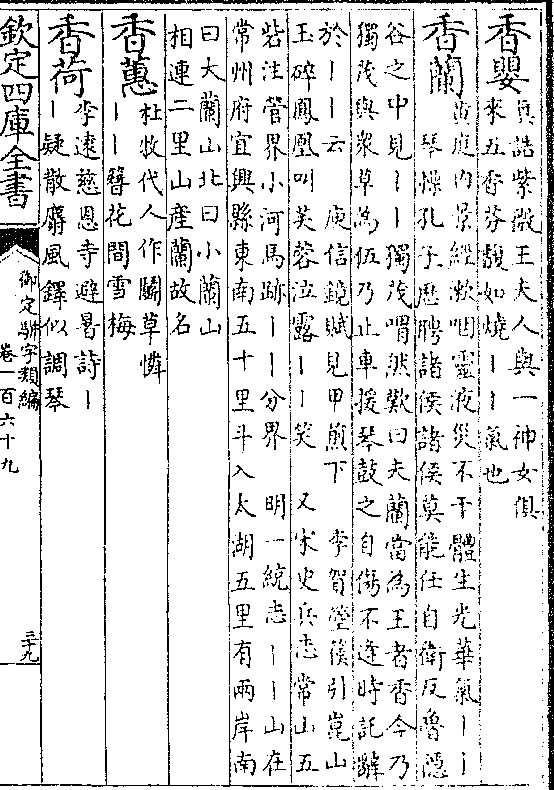 香嬰
真誥紫微王夫人與一神女俱
來五香芬馥如燒丨丨氣也
香蘭
黄庭内景經漱咽靈液災不干體生光華氣丨丨
琴操孔子歷聘諸侯諸侯莫能任自衛反魯隱
谷之中見丨丨獨茂喟然歎曰夫蘭當為王者香今乃
獨茂與衆草為伍乃止車援琴鼓之自傷不逢時託辭
於丨丨云 庾信鏡賦見甲煎下 李賀箜篌引崑山
玉碎鳳凰叫芙蓉泣露丨丨笑 又宋史兵志常山五
砦注管界小河馬跡丨丨分界 明一統志丨丨山在
常州府宜興縣東南五十里斗入太湖五里有兩岸南
曰大蘭山北曰小蘭山
相連二里山産蘭故名
香蕙
杜牧代人作鬭草憐
丨丨簪花間雪梅
香荷
李逺慈恩寺避暑詩丨
丨疑散麝風鐸似調琴
欽定四庫全書
御定駢字類編
卷一百六十九
三十九